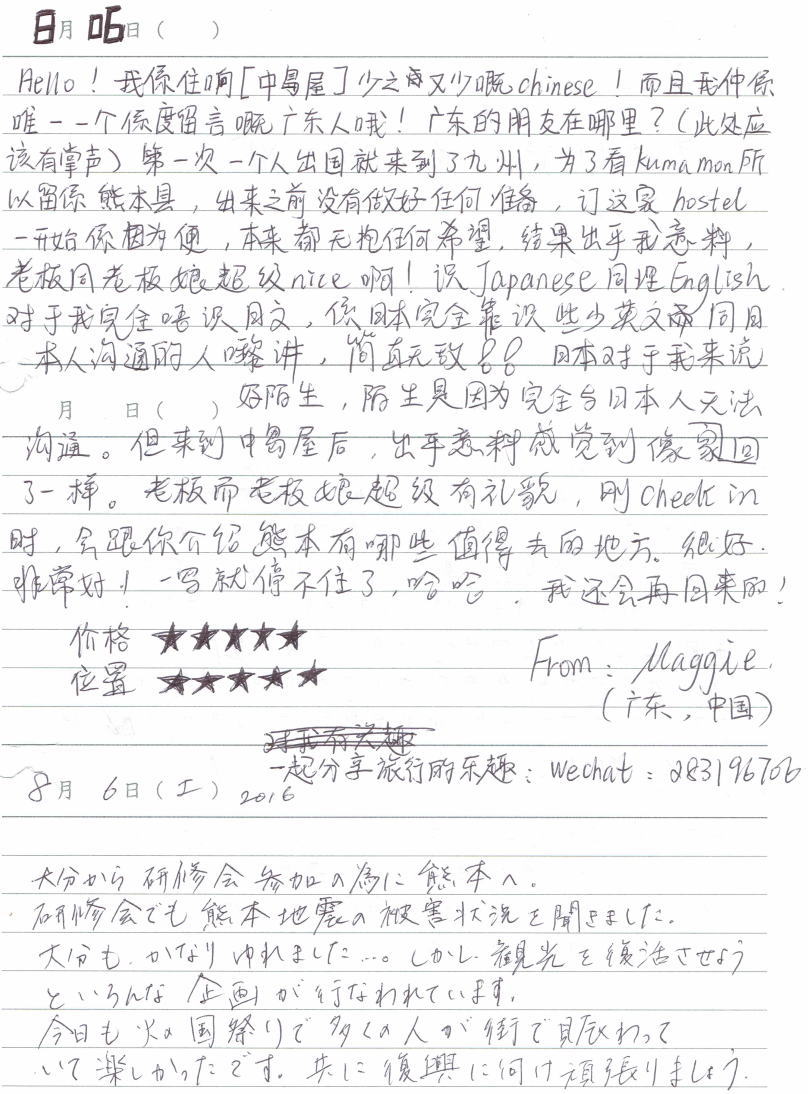 8月06日( )
Hello! 我係住响[中島屋]少之有又少嘅chinese! 而且我仲係
唯一一个係度留言嘅广东人哦! 广东的朋友在哪里?(此处应
该有掌声) 第一次一个人出国就来到了九州, 为了看kumamon所
以留係熊本县, 出来之前没有做好任何准备, 订这家 hostel
一开始係因为便, 本来都无抱任何希望, 结果出乎我意料,
老板同老板娘超级nice啊! 识Japanese同埋English.
对于我完全唔识日文, 係日本完全靠识些少英文而同日
本人沟通的人嚟讲, 简直无敌!! 日本对于我来说
月 日( ) 好陌生, 陌生是因为完全与日本人无法
沟通。但来到中島屋后, 出乎意料感觉到像家回
了一样。老板而老板娘超级有礼貌, 刚check in
时, 会跟你介绍熊本有哪些值得去的地方。很好.
非常好! 一写就停不住了, 哈哈. 我还会再回来的!
价格 ★★★★★
From: Maggie.
位置 ★★★★★
(广东, 中国)
对我有兴趣
一起分享旅行的乐趣: wechat: 283196706
8月 6日(土) 2016
大分から研修会参加の為に熊本へ。
研修会でも熊本地震の被害状況を聞きました。
大分も、かなりゆれました…。しかし、観光を復活させよう
といろんな企画が行なわれています。
今日も火の国祭りで多くの人が街で賑わって
いて楽しかったです。共に復興に向け頑張りましょう。